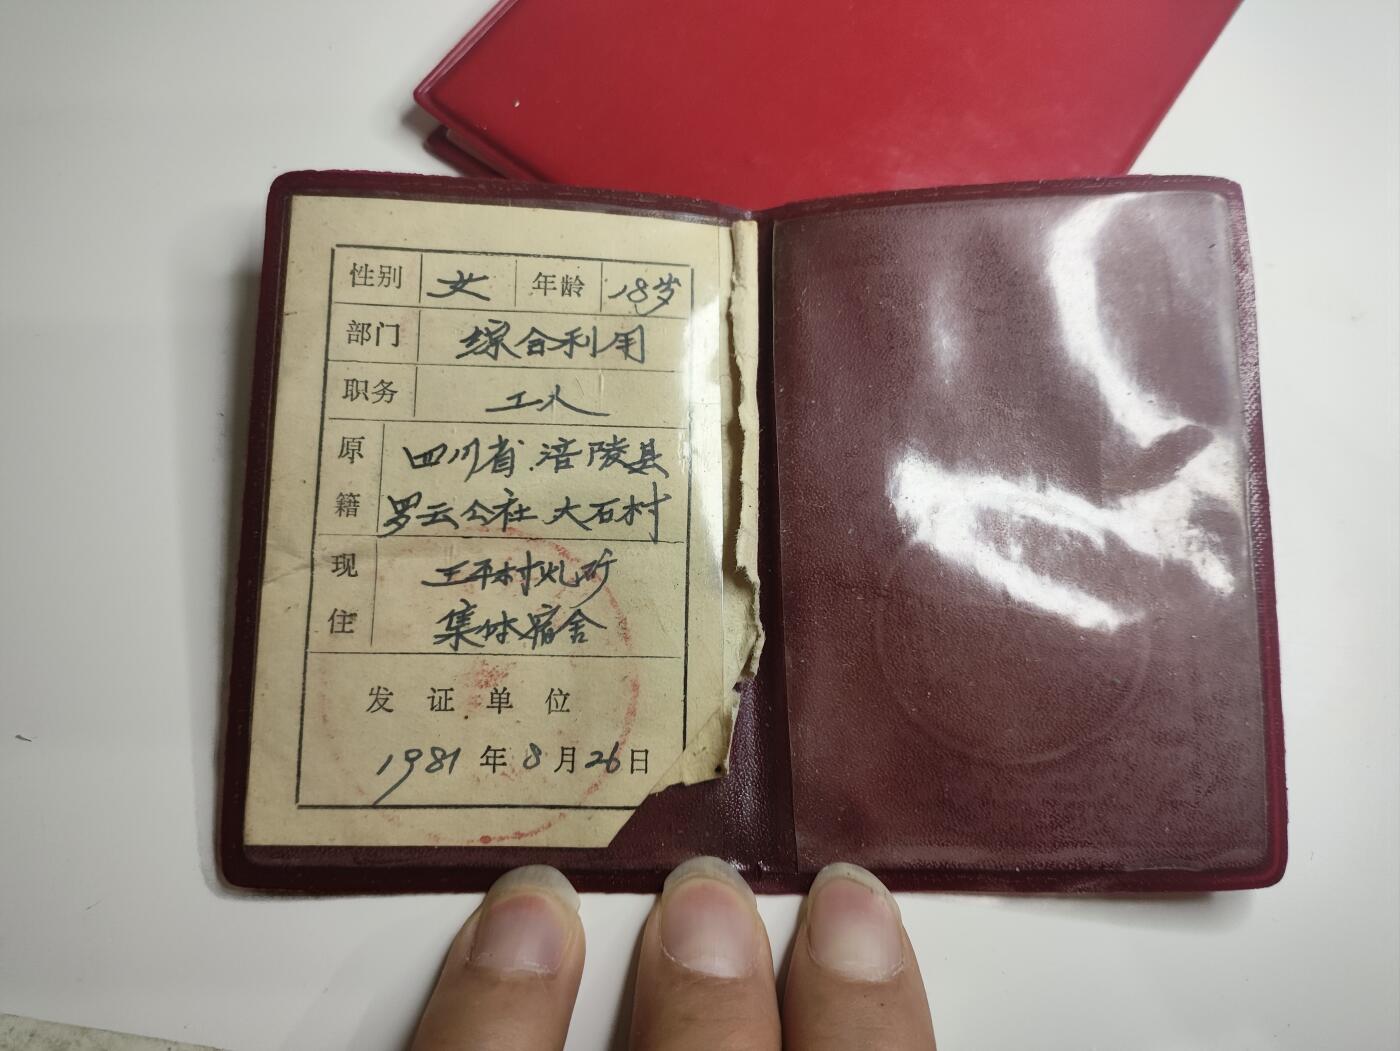 性别 女 年龄 18岁
部门 综合利用
职务 工人
原籍 四川省涪陵县
罗云公社 大石村
现住 王平村煤矿
集体宿舍
发证单位
1981年8月26日